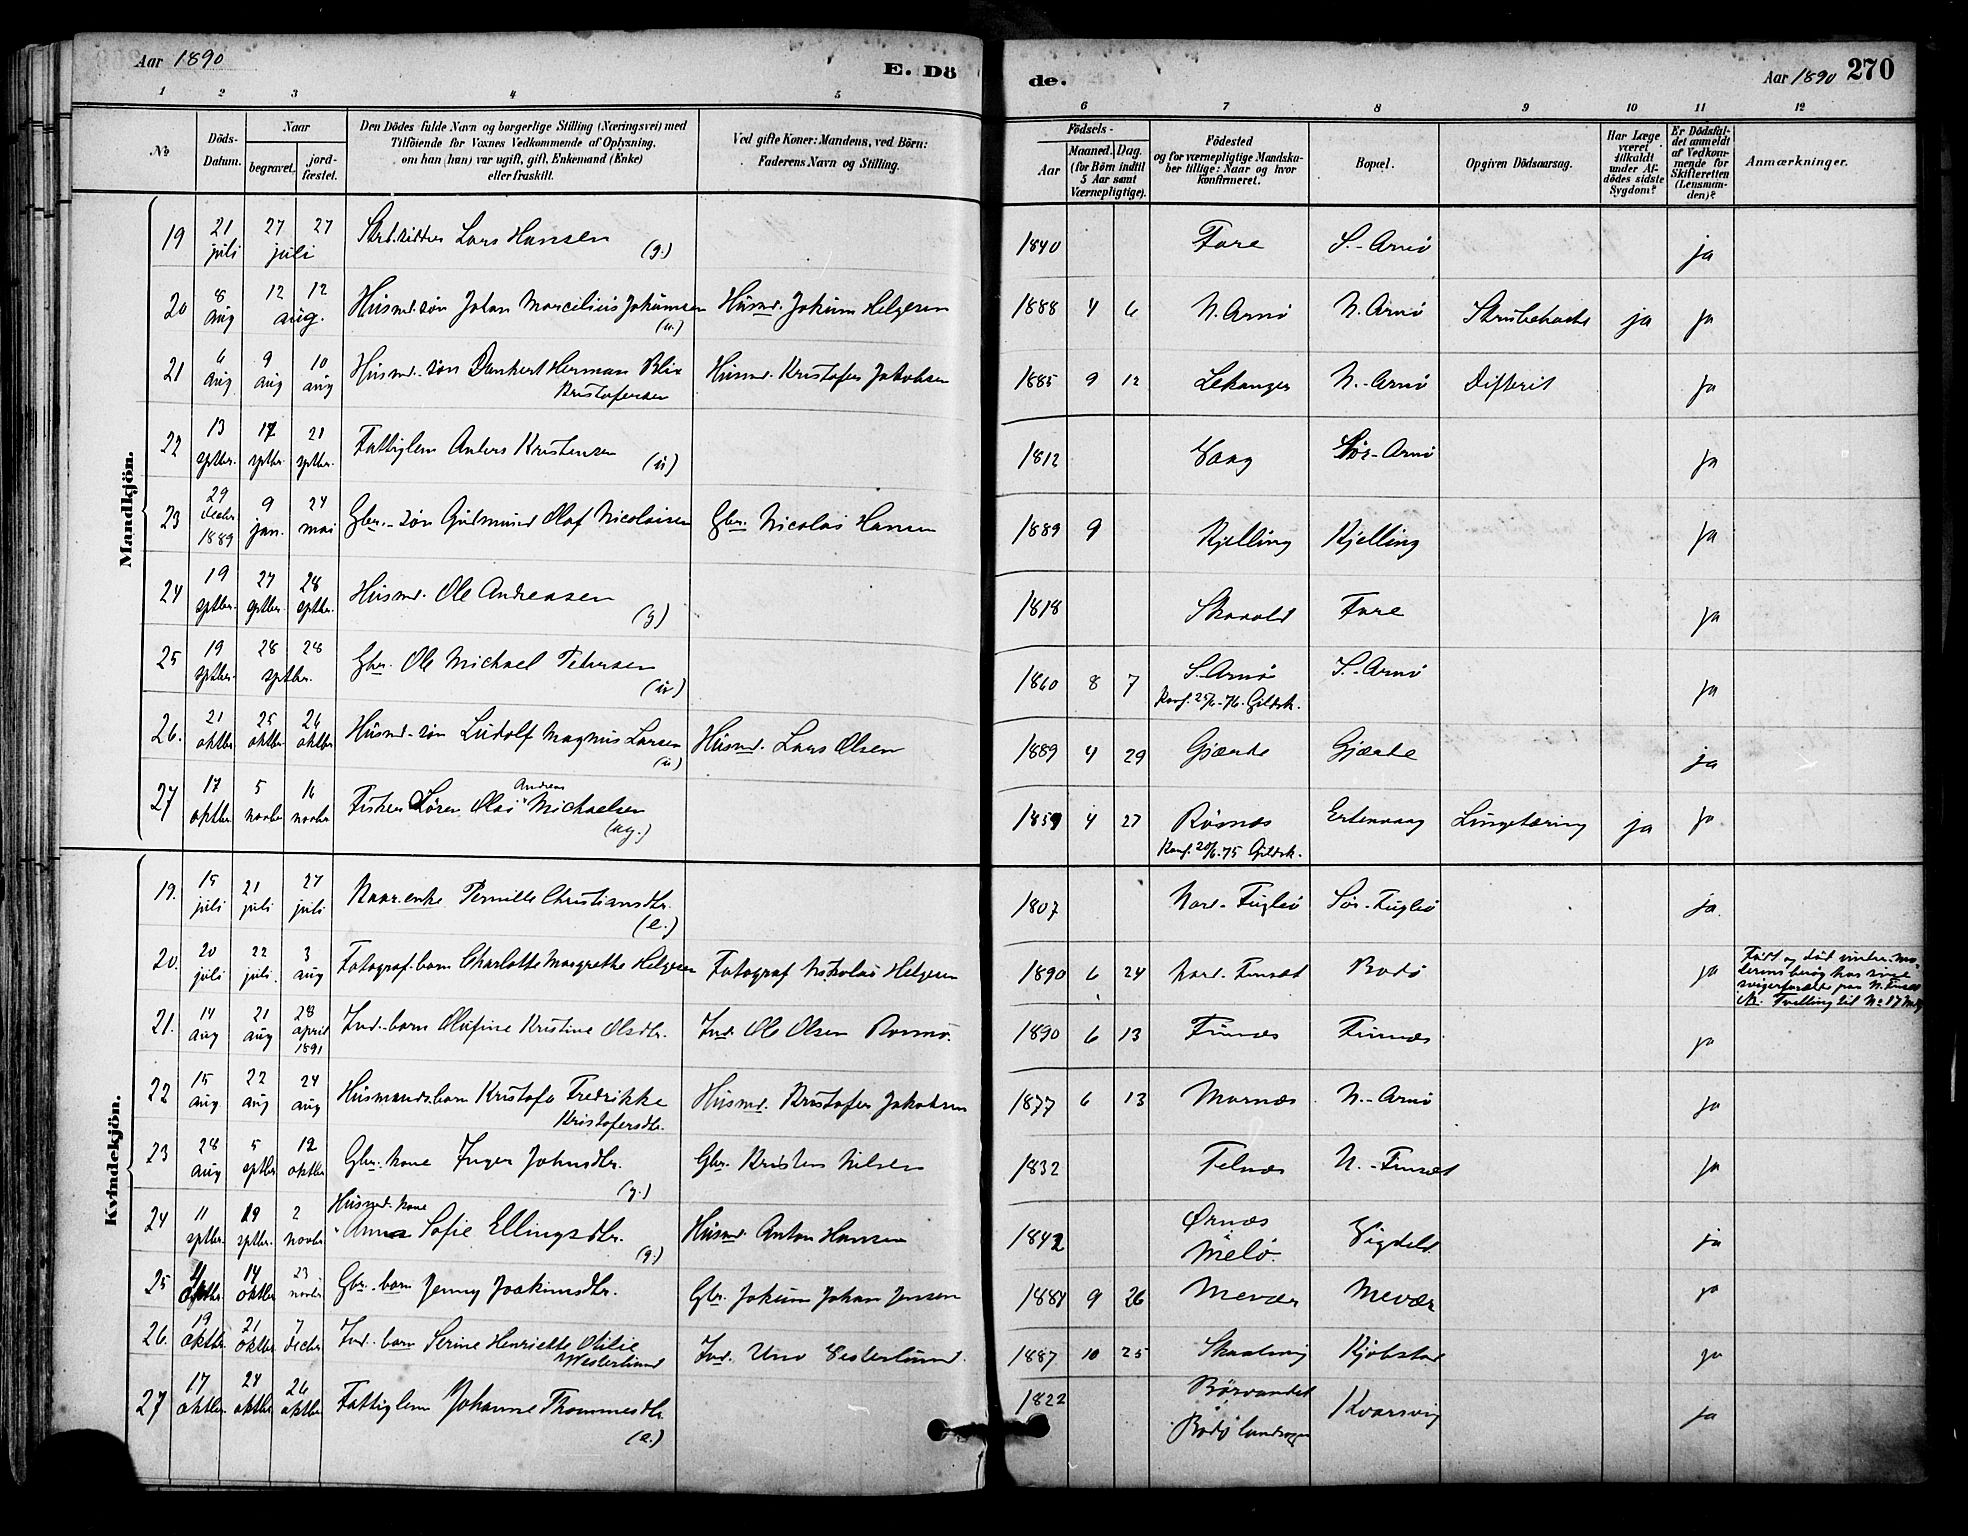 Aar 1890
E. Dö
de.
Aar 1890 270
1 2 3 4 5 6 7 8 9 10 11 12
No.
Döds-Datum.
Naar
begravet.
jord-fæstet.
Den Dödes fulde Navn og borgerlige Stilling (Næringsvei) med
Tilföiende for Voxnes Vedkommende af Oplysning,
om han (hun) var ugift, gift, Enkemand (Enke)
eller fraskilt.
Ved gifte Koner: Mandens, ved Börn:
Faderens Navn og Stilling.
Födsels-
Aar
Maaned. Dag.
(for Börn indtil
5 Aar samt
Værnepligtige).
Födested
og for værnepligtige Mandska-
ber tillige: Naar og hvor
konfirmeret.
Bopæl.
Opgiven Dödsaarsag.
Har Læge
været
tilkaldt
under Af-
dödes sidste
Sygdom?
Er Dödsfal-
det anmeldt
af Vedkom-
mende for
Skifteretten
(Lensman-
den)?
Anmærkninger.
Mandkjön.
19 21 juli 27 27 juli Lars Hansen (g.) 1840 Fore S.-Arnö ja
20 8 aug 12 12 aug. Husmd. søn Johan Marcelius Jokumsen (u.) Husmd. Jokum Helgesen 1888 4 6 N. Arnö N. Arnö Strubehoste ja ja
21 6 aug 9 aug 10 aug Husmd. søn Dankert Herman Blix Kristofersen Husmd. Kristofer Jakobsen 1885 9 12 Lekanger N.-Arnö Difterit ja
22 13 sptbr. 17 sptbr. 21 sptbr. Fattiglem Anders Kristensen (u) 1812 Vaag Sør-Arnö ja
23 29 decbr 1889 9 jan. 24 mai Gbr.-søn Gudmund Olaf Nicolaisen Gbr. Nicolai Hansen 1889 9 Kjelling Kjelling ja
24 19 sptbr. 27 sptbr. 28 sptbr. Husmd. Ole Andreasen (g) 1818 Skaalds Fore ja
25 19 sptbr. 28 28 sptbr. Gbr. Ole Michael Petersen (u) 1860 8 7 S. Arnö Konf. 25/6-76. Gildsk. S.-Arnö ja
26. 21 oktbr 25 oktbr 26 oktbr Husmd-søn Ludolf Magnus Larsen (u) Husmd. Lars Olsen 1889 4 29 Gjærde Gjærde ja
27 17 oktbr. 5 novbr 16 novbr Fisker Sören Olai Andreas Michaelsen (ug.) 1859 4 27 Rösnes Konf. 20/6-75 Gildsk. Ertenvaag Lungetæring ja ja
Kvindekjön.
19. 15 juli 21 juli 27 juli Kaar.enke Pernille Christiansdtr. (e.) 1807 Nord-Fuglö Sør-Fuglö ja
20. 20 juli 22 juli. 3 aug Fotograf.barn Charlotte Margrethe Helgesen Fotograf Nikolai Helgesen 1890 6 24 Nord. Finset Bodö ja Født og død under mo-
derens besøg hos sine
svigerforældre paa N. Finset
Tvilling til No 17 Mdkj
21. 14 aug 21 aug 28 april 1891 Ind-barn Olufine Kristine Olsdtr. Ind. Ole Olsen 1890 6 13 Finnes Finnes ja
22 15 aug 22 aug 24 aug Husmandsbarn Kristofa Fredrikke Kristofersdtr. Husmd. Kristofer Jakobsen 1877 6 13 Mornes N.-Arnö ja
23 28 aug 5 sptbr 12 oktbr Gbr. kone Inger Johnsdtr. (g.) Gbr. Kristen Nilsen 1832 Telnes N.-Finset ja
24 11 sptbr. 19 sptbr. 2 novbr Husmd. kone Anna Sofie Ellingsdtr. (g.) Husmd. Anton Hansen 1842 Ørnes Melö. Vigdel ja
25 4 oktbr. 14 oktbr 23 novbr Gbr. barn Jenny Joakimsdtr. Gbr. Jokum Johan Jensen 1887 9 26 Mevær Mevær ja
26. 19 oktbr. 21 oktbr 7 decbr Ind. barn Serine Henriette Otilie Westerlund Ind. Uno Vesterlund. 1887 10 25 Kjobstad ja
27 17 oktbr. 24 oktbr 26 oktbr Fattiglem Johanne Thommesdtr (e.) 1822 Børvandet Bodö landsogn Kvarsvig ja